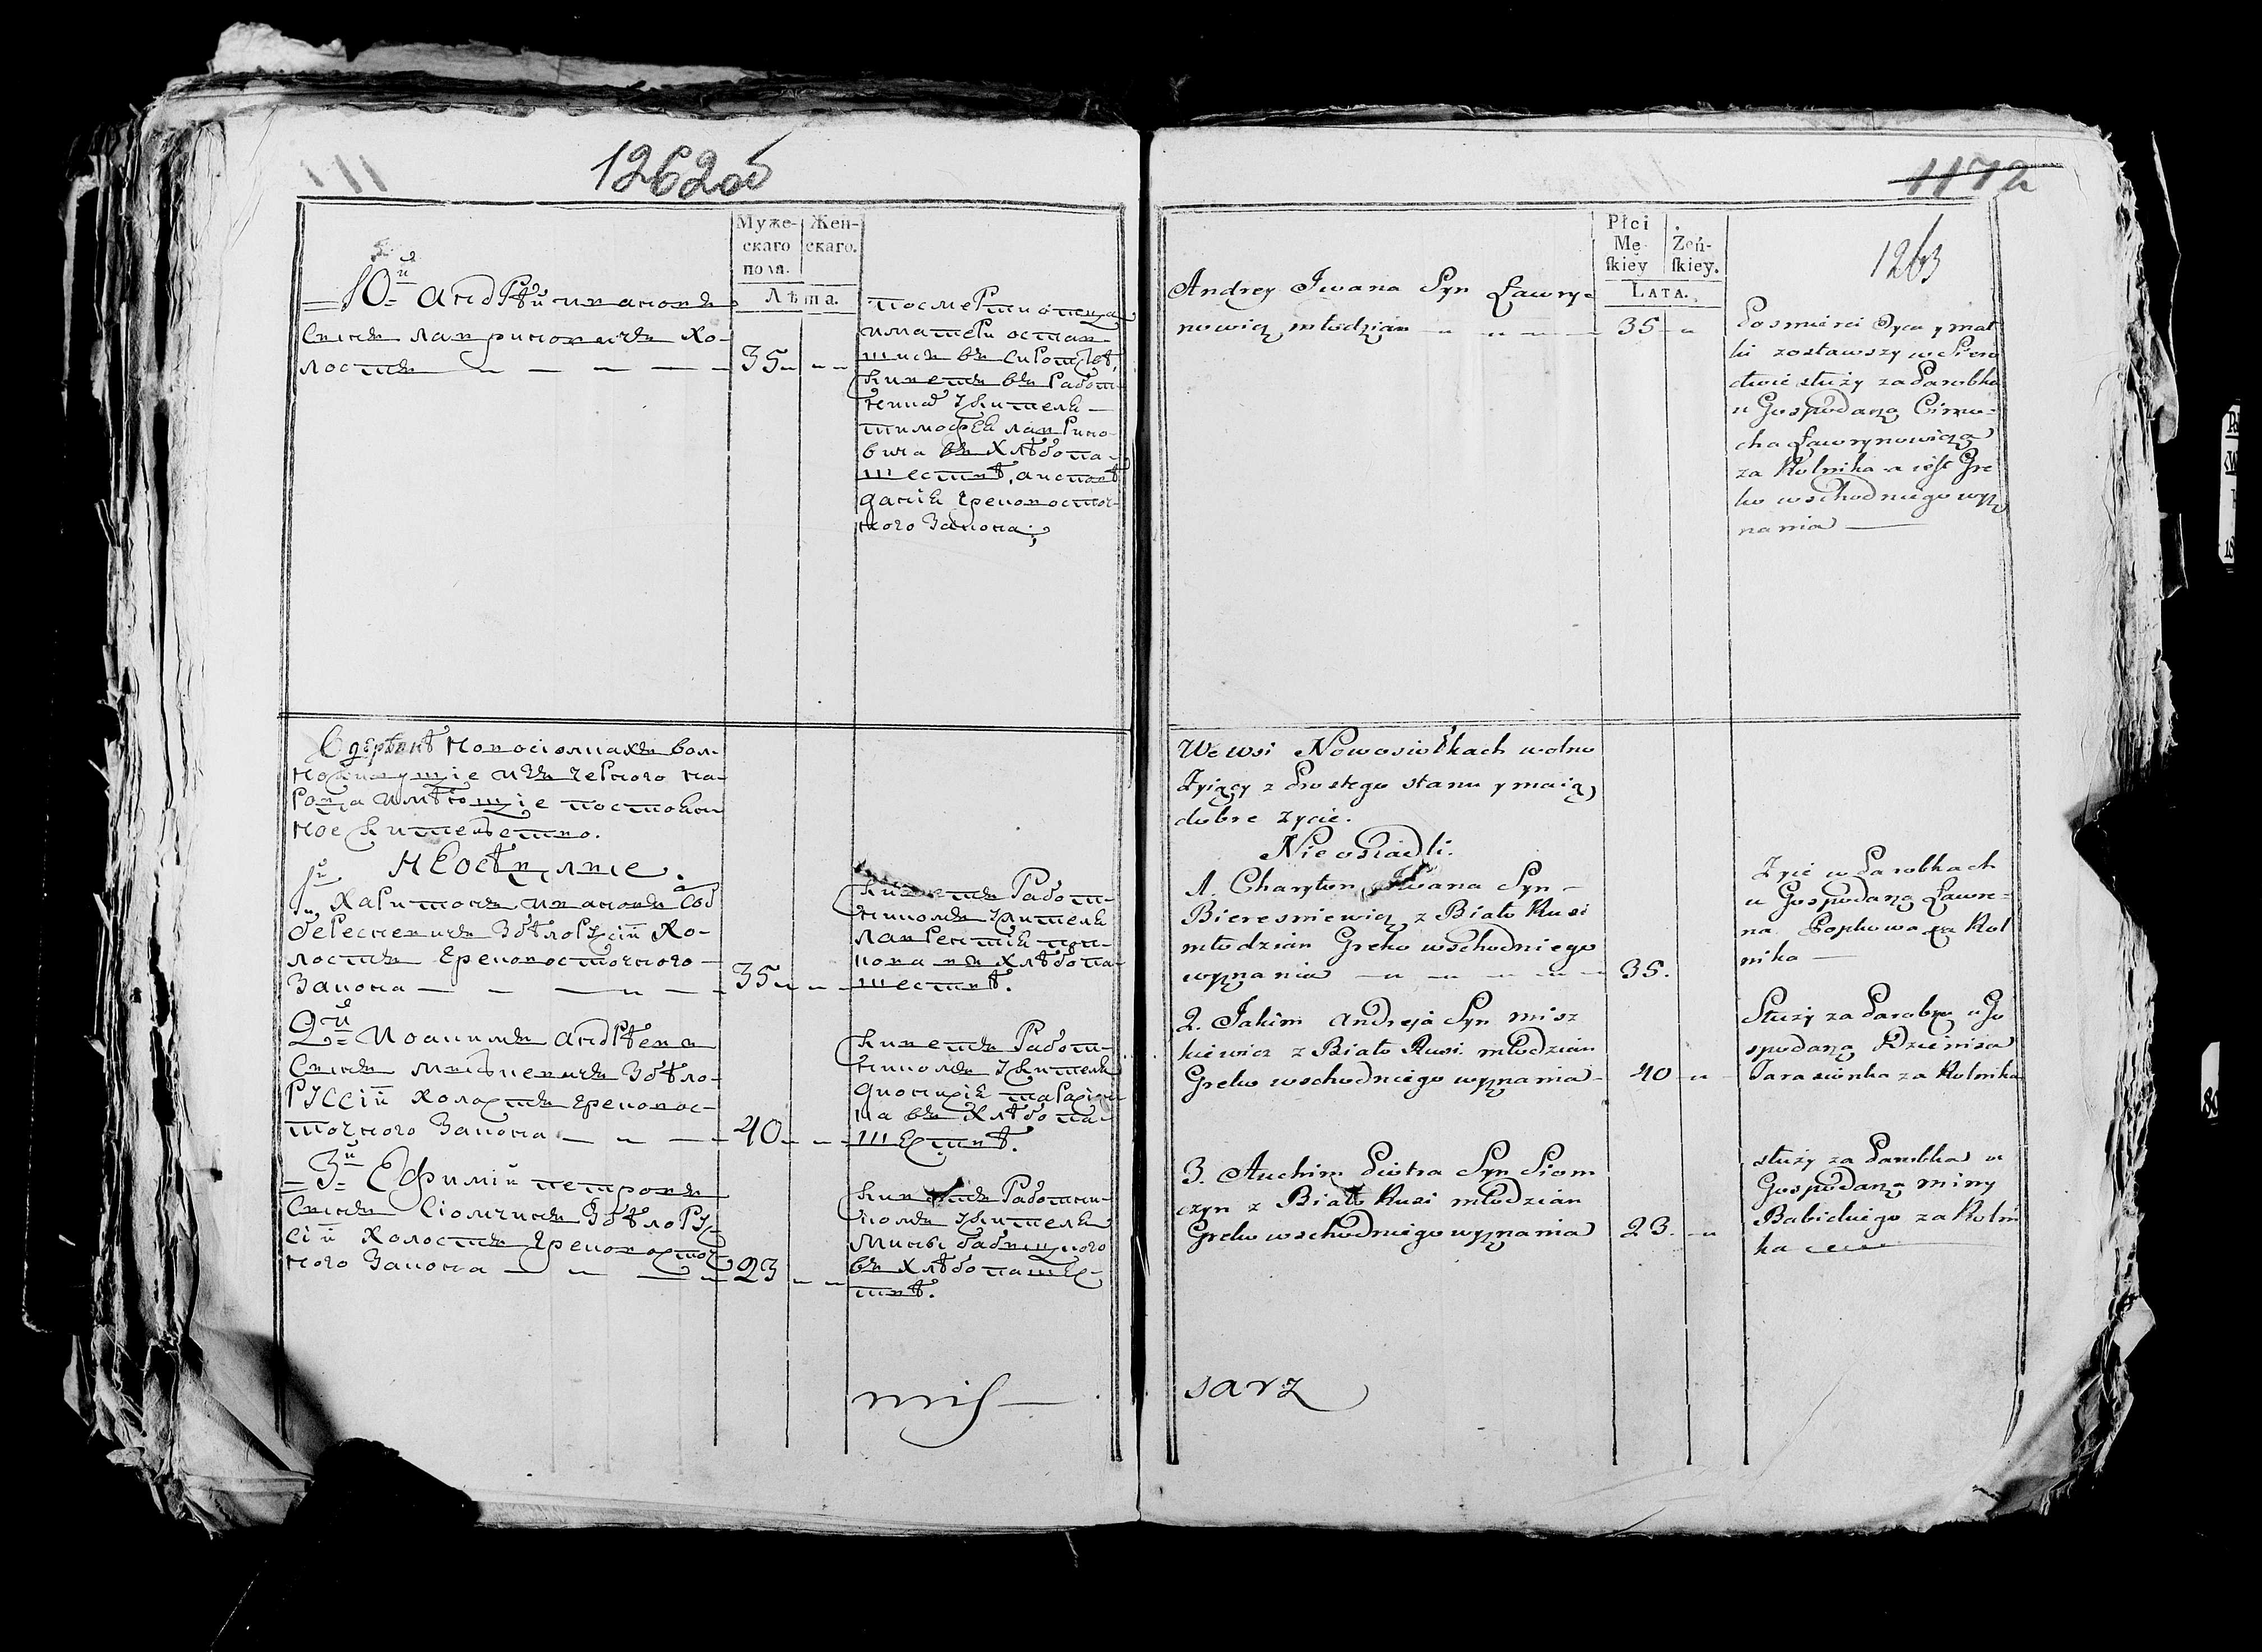 1262об
Муже-
скаго
пола.
Жен-
скаго.
Лѣта.
10й Андрѣй Ивановъ
Сынъ Лавриновичъ хо-
лостъ 35
после смерти отца
и матери остав-
шись въ сиротствѣ,
живетъ въ работ-
никахъ у жителя
Тимофея Лаврино-
вича въ хлѣбопа-
шествѣ, а исповѣ-
данія Грековосточ-
ного Закона;
Въ деревнѣ Новосіолкахъ вол-
ноживущіе изъ черного на-
рода имѣющіе постоян-
ное жительство.
Неосѣдлие.
1й Харитонъ Ивановъ сы
Бересневичъ Збѣлорусіи хо-
лостъ Грековосточного
Закона 35
живетъ работ-
никомъ у жителя
Лаврентія Поп-
кова въ хлѣбопа-
шествѣ.
2й Иоакимъ Андрѣевъ
Сынъ Мишкевичъ Збѣло-
руссіи холостъ Грековос-
точного Закона 40
живетъ работ-
никомъ у жителя
Дионизія Тарасіон-
ка въ хлѣбопа-
шествѣ.
3й Ефимій Петровъ
Сынъ Сіомчинъ Збѣлорус-
сіи холостъ Грековосточ-
ного Закона 23
живетъ работни-
комъ у жителя
Мины Бабицкого
въ хлѣбопаше-
ствѣ.
mis
1172
1263
Płci
Mę-
skiey
Żeń-
skiey.
LATA.
Andrey Iwana Syn Ławry-
nowicz młodzian 35
Po smierci Oyca y mat
ki zostawszy w Siero
ctwie służy za Parobka
u Gospodarza Cimo-
cha Ławrynowicza
za Rolnika a iest Gre
ko wschodniego wyz
nania
We wsi Nowosiołkach wolno
Żyiący z Prostego stanu y maią
dobre życie.
Nieosiadli.
1. Charyton Iwana Syn
Bieresniewicz z Biało Rusi
młodzian Greko wschodniego
wyznania 35.
Żyie w Parobkach
u Gospodarza Ławre-
na Popkowa za Rol
nika
2. Jakim Andreja Syn Misz
kiewicz z Biało Rusi młodzian
Greko wschodniego wyznania 40
Służy za Parobka u Go
spodarza Dzienisa
Tarasionka za Rolnika
3. Auchim Piotra Syn Siom
czyn z Biało Rusi młodzian
Greko wschodniego wyznania 23.
służy za Parobka u
Gospodarza Miny
Babickiego za Rolni
ka
sarz